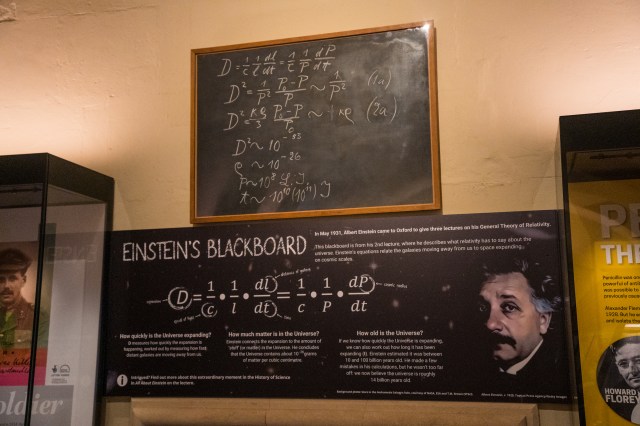 D = 1/c 1/l dl/dt = 1/c 1/P dP/dt
D² = 1/P² P₀-P/P ~ 1/P² (1a)
D² = κρ/3 P₀-P/P₀ ~ κρ (2a)
D² ~ 10⁻⁵³
ρ ~ 10⁻²⁶
P ~ 10⁸ L. J
t ~ 10¹⁰ (10¹¹) J
EINSTEIN'S BLACKBOARD
In May 1931, Albert Einstein came to Oxford to give three lectures on his General Theory of Relativity.
This blackboard is from his 2nd lecture, where he describes what relativity has to say about the
universe. Einstein's equations relate the galaxies moving away from us to space expanding,
on cosmic scales.
D = 1/c · 1/l · dl/dt = 1/c · 1/P · dP/dt
How quickly is the Universe expanding?
D measures how quickly the expansion is
happening, worked out by measuring how fast
distant galaxies are moving away from us.
How much matter is in the Universe?
Einstein connects the expansion to the amount of
'stuff' (or matter) in the Universe. He concludes
that the Universe contains about 10⁻²⁶ grams
of matter per cubic centimetre.
How old is the Universe?
If we know how quickly the Universe is expanding,
we can also work out how long it has been
expanding (t). Einstein estimated it was between
10 and 100 billion years old. He made a few
mistakes in his calculations, but he wasn't too far
off: we now believe the universe is roughly
14 billion years old.
i
Intrigued? Find out more about this extraordinary moment in the History of Science
in All About Einstein on the lecture.
PE
THE
Penicillin was
powerful of
was possible to
previously
Alexander Flem
1928. But he
and isolate the
HOWARD
FLOREY
oldier